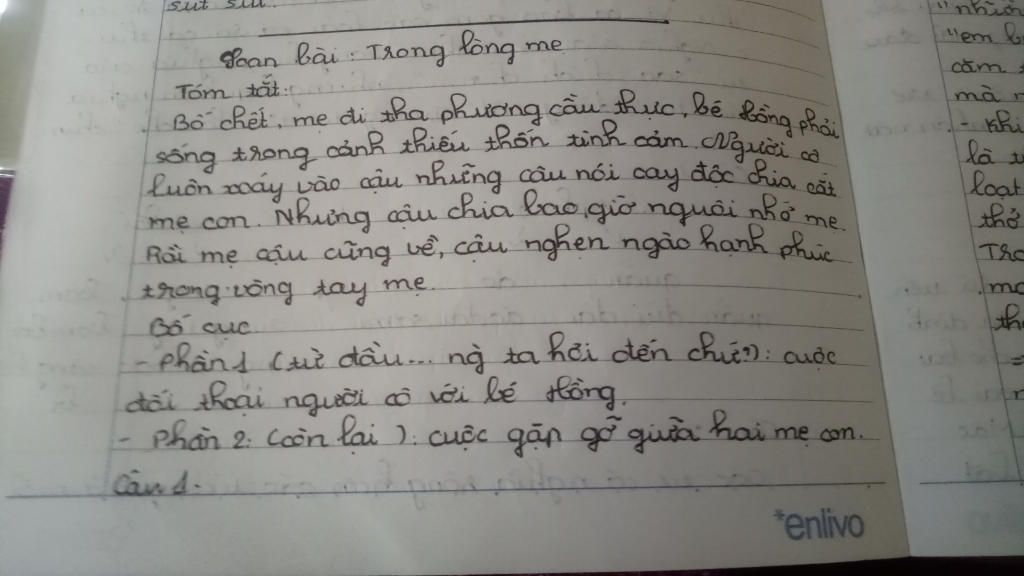 sụt sùi.
Soạn bài: Trong lòng mẹ
Tóm tắt.
Bố chết, mẹ đi tha phương cầu thực, bé Hồng phải
sống trong cảnh thiếu thốn tình cảm. Người cô
luôn xoáy vào cậu những câu nói cay độc chia cắt
mẹ con. Nhưng cậu chia bao giờ nguôi nhớ mẹ.
Rồi mẹ cậu cũng về, cậu nghẹn ngào hạnh phúc
trong vòng tay mẹ.
Bố cục
- Phần 1 (từ đầu... ng` ta hỏi đến chứ?): cuộc
đối thoại người cô với bé Hồng.
- Phần 2: (còn lại): cuộc gặp gỡ giữa hai mẹ con.
Câu 1.
*enlivo
"em
cảm
mà
- Khi
là
loạt
thở